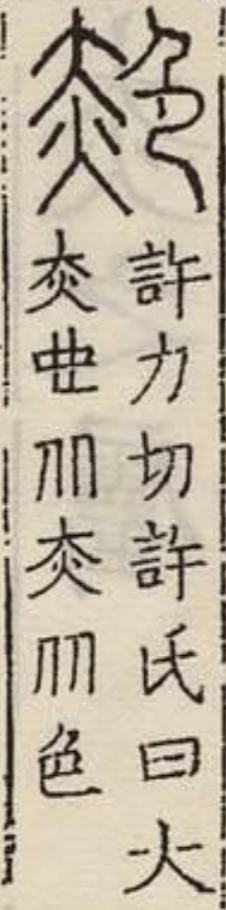 赩
許力切許氏曰大
赤也从赤从色